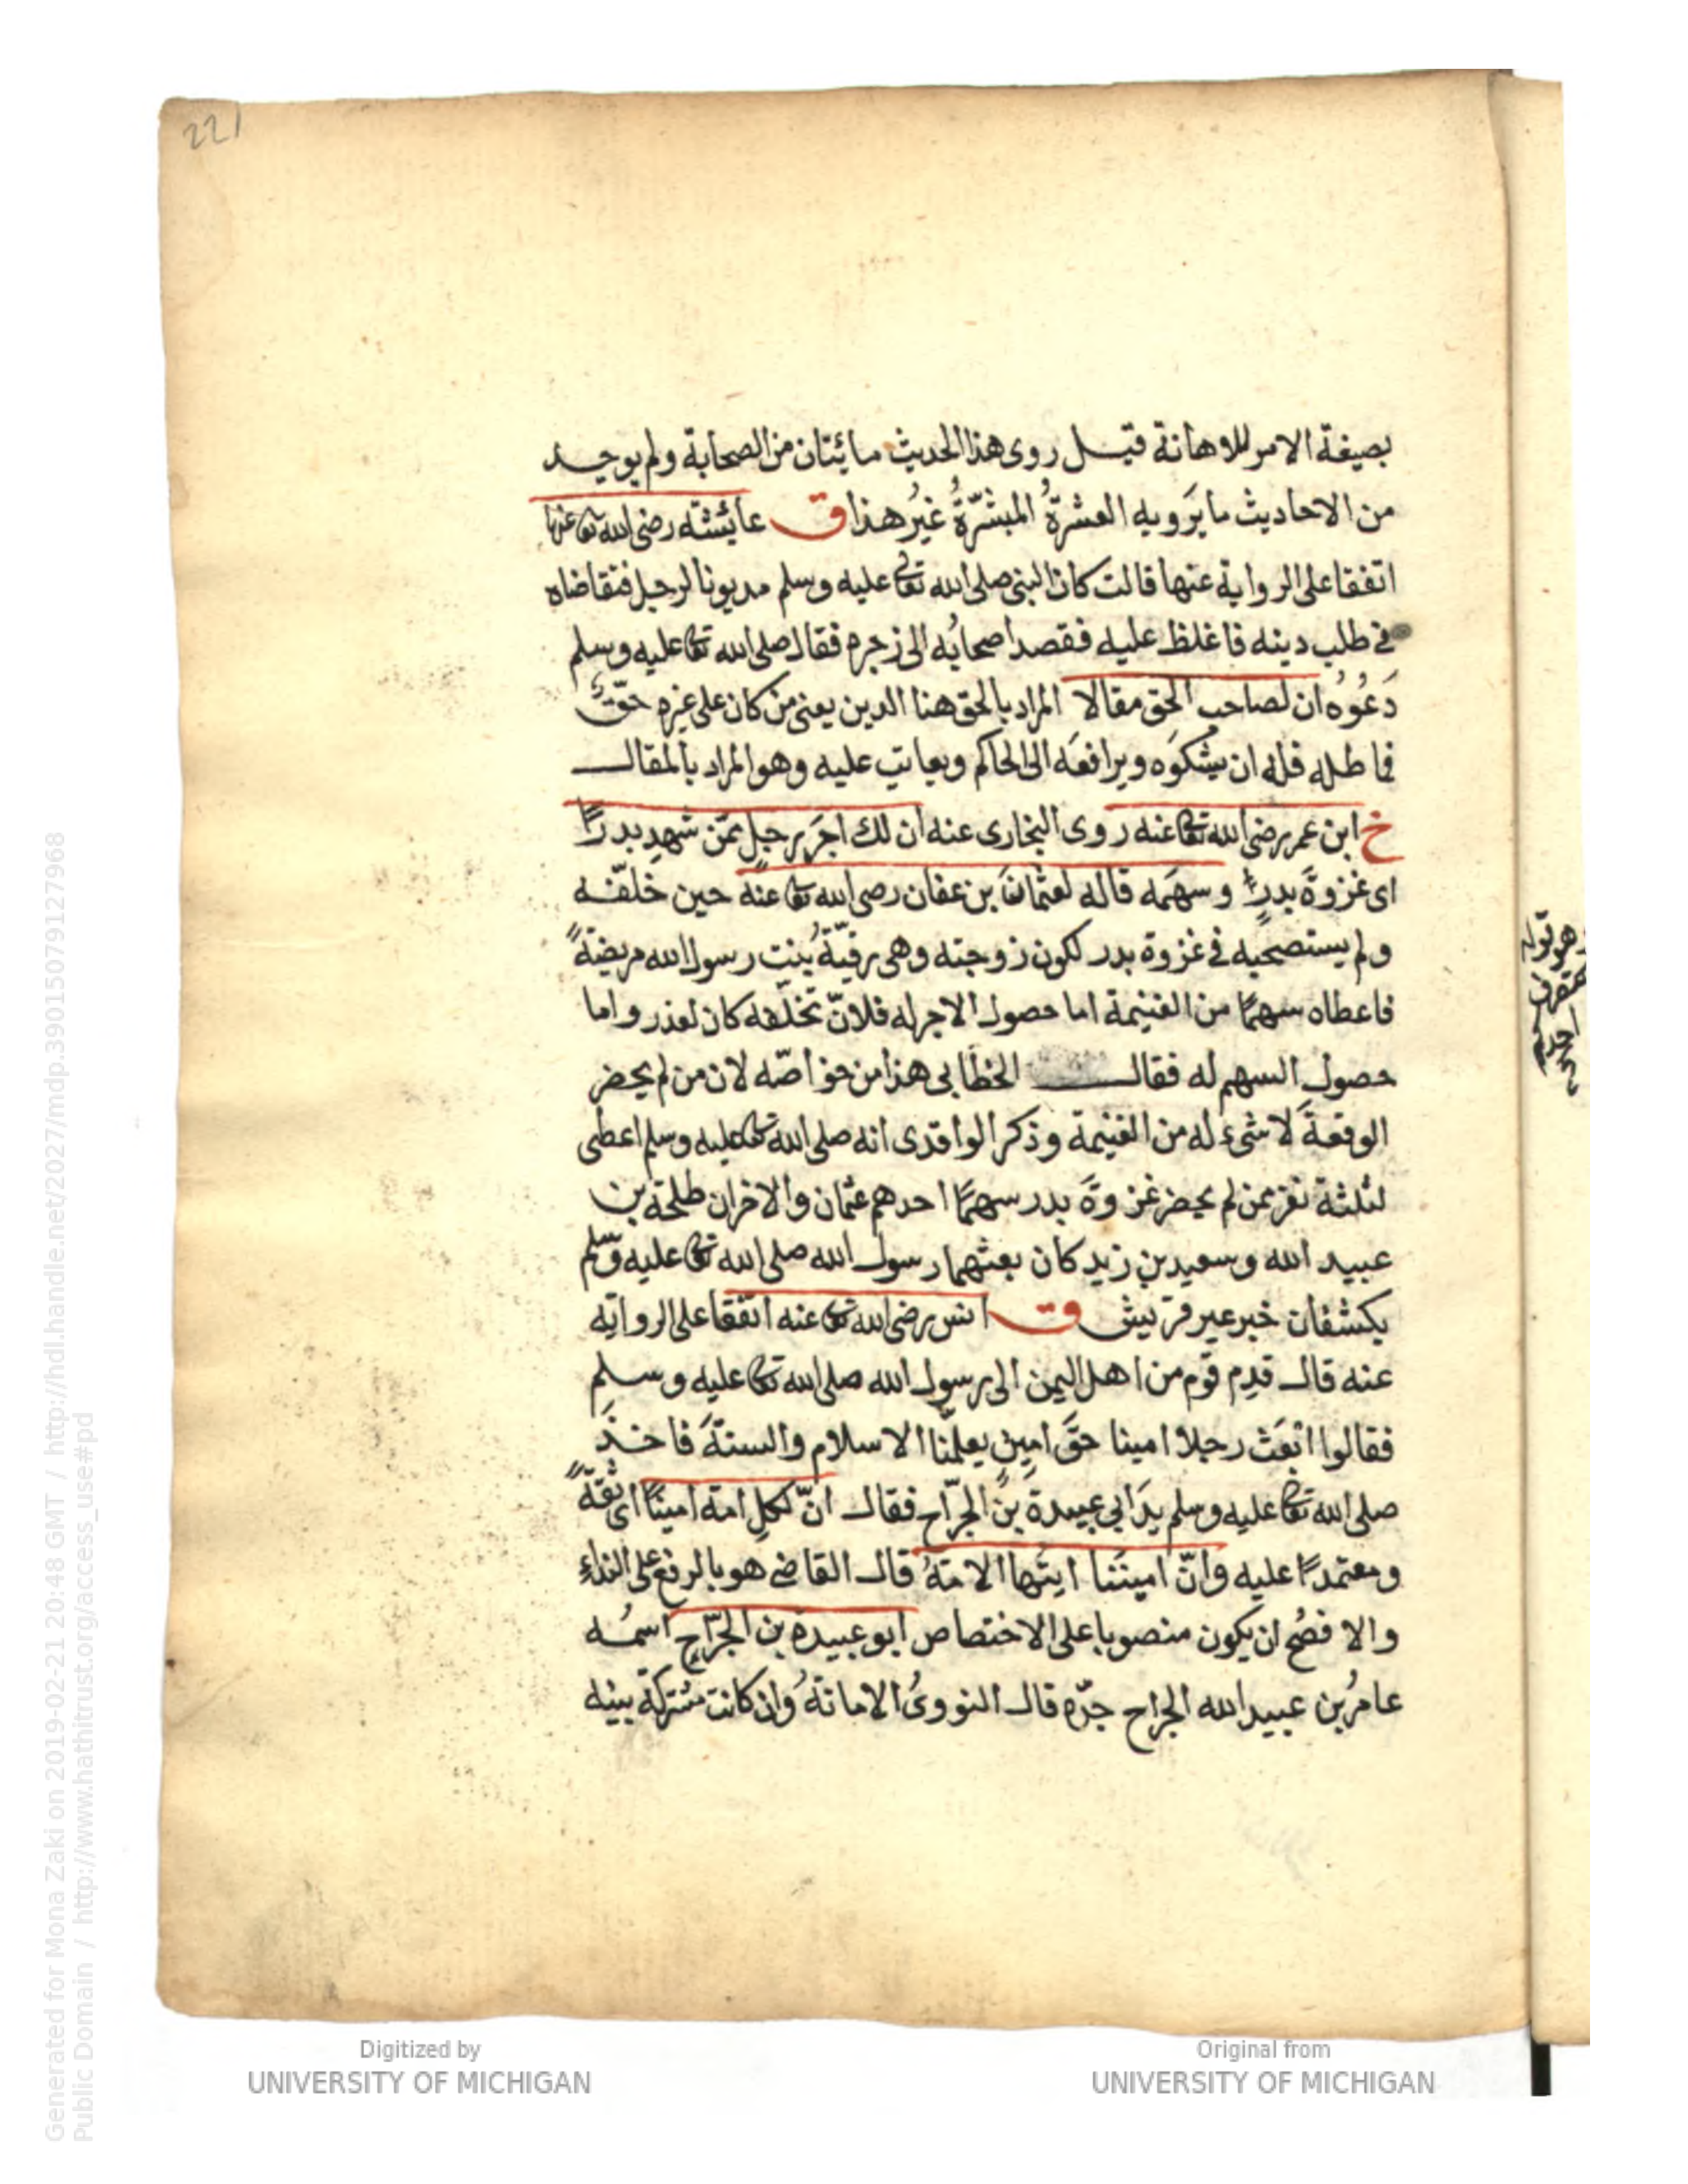 221
بصيغة الامر للاهانة قيل روى هذا الحديث مائتان من الصحابة ولم يوجد
من الاحاديث ما يَرويه العشرةُ المبشّرةُ غيرُ هذا ق عايشته رضى الله تعا عنها
اتفقا على الرواية عنها قالت كان النبى صلى الله تعالى عليه وسلم مديونا لرجل فتقاضاه
فى طلب دينه فاغلظ عليه فقصد اصحابُه الى زجره فقال صلى الله تعا عليه وسلم
دَعُوُه ان لصاحب الحق مقالا المراد بالحق هنا الدين يعنى من كان على غيره حقّ
فماطله فله ان يشكوَه ويرافعَه الى الحاكم ويعاتِب عليه وهو المراد بالمقال
خ ابن عمر رضى الله تعا عنه روى البخارى عنه ان لك اجَر رجلٍ ممّن شهِد بدرًا
اى غزوةَ بدرٍ وسهمَه قاله لعثمانَ بن عفان رضى الله تعا عنه حين خلّفه
ولم يستصحبه فى غزوة بدر لكون زوجته وهى رقيّةُ بنت رسول الله مريضةً
فاعطاه سهمًا من الغنيمة اما حصول الاجر له فلانّ تخلّفه كان لعذر واما
حصول السهم له فقال الخطابى هذا من خواصّه لان من لم يحضر
الوقعةَ لا شىء له من الغنيمة وذكر الواقدى انه صلى الله تعا عليه وسلم اعطى
لثلثة نفر ممن لم يحضر غزوةَ بدر سهمًا احدهم عثمان والاخران طلحة بن
عبيد الله وسعيد بن زيد كان بعثهما رسول الله صلى الله تعا عليه وسلم
يكشفان خبر عير قريش ق انس رضى الله تعا عنه اتفقا على الرواية
عنه قال قدِم قوم من اهل اليمن الى رسول الله صلى الله تعا عليه وسلم
فقالوا ابْعَثْ رجلا امينا حقَّ امين يعلّمنا الاسلام والسنةَ فاخذ
صلى الله تعا عليه وسلم يدَ ابى عبيدةَ بنِ الجرّاح فقال انّ لكل امة امينًا اى ثقةً
ومعتمدًا عليه وانّ امينَنا ايتها الامةُ قال القاضى هو بالرفع على النداء
والافصُح ان يكون منصوبا على الاختصاص ابو عبيدة بن الجرّاح اسمُه
عامرُ بن عبيد الله الجراح جدّه قال النووىُ الامانةُ وان كانت مشتركة بينه
Digitized by
UNIVERSITY OF MICHIGAN
Original from
UNIVERSITY OF MICHIGAN
Generated for Mona Zaki on 2019-02-21 20:48 GMT / http://hdl.handle.net/2027/mdp.39015079127968
Public Domain / http://www.hathitrust.org/access_use#pd